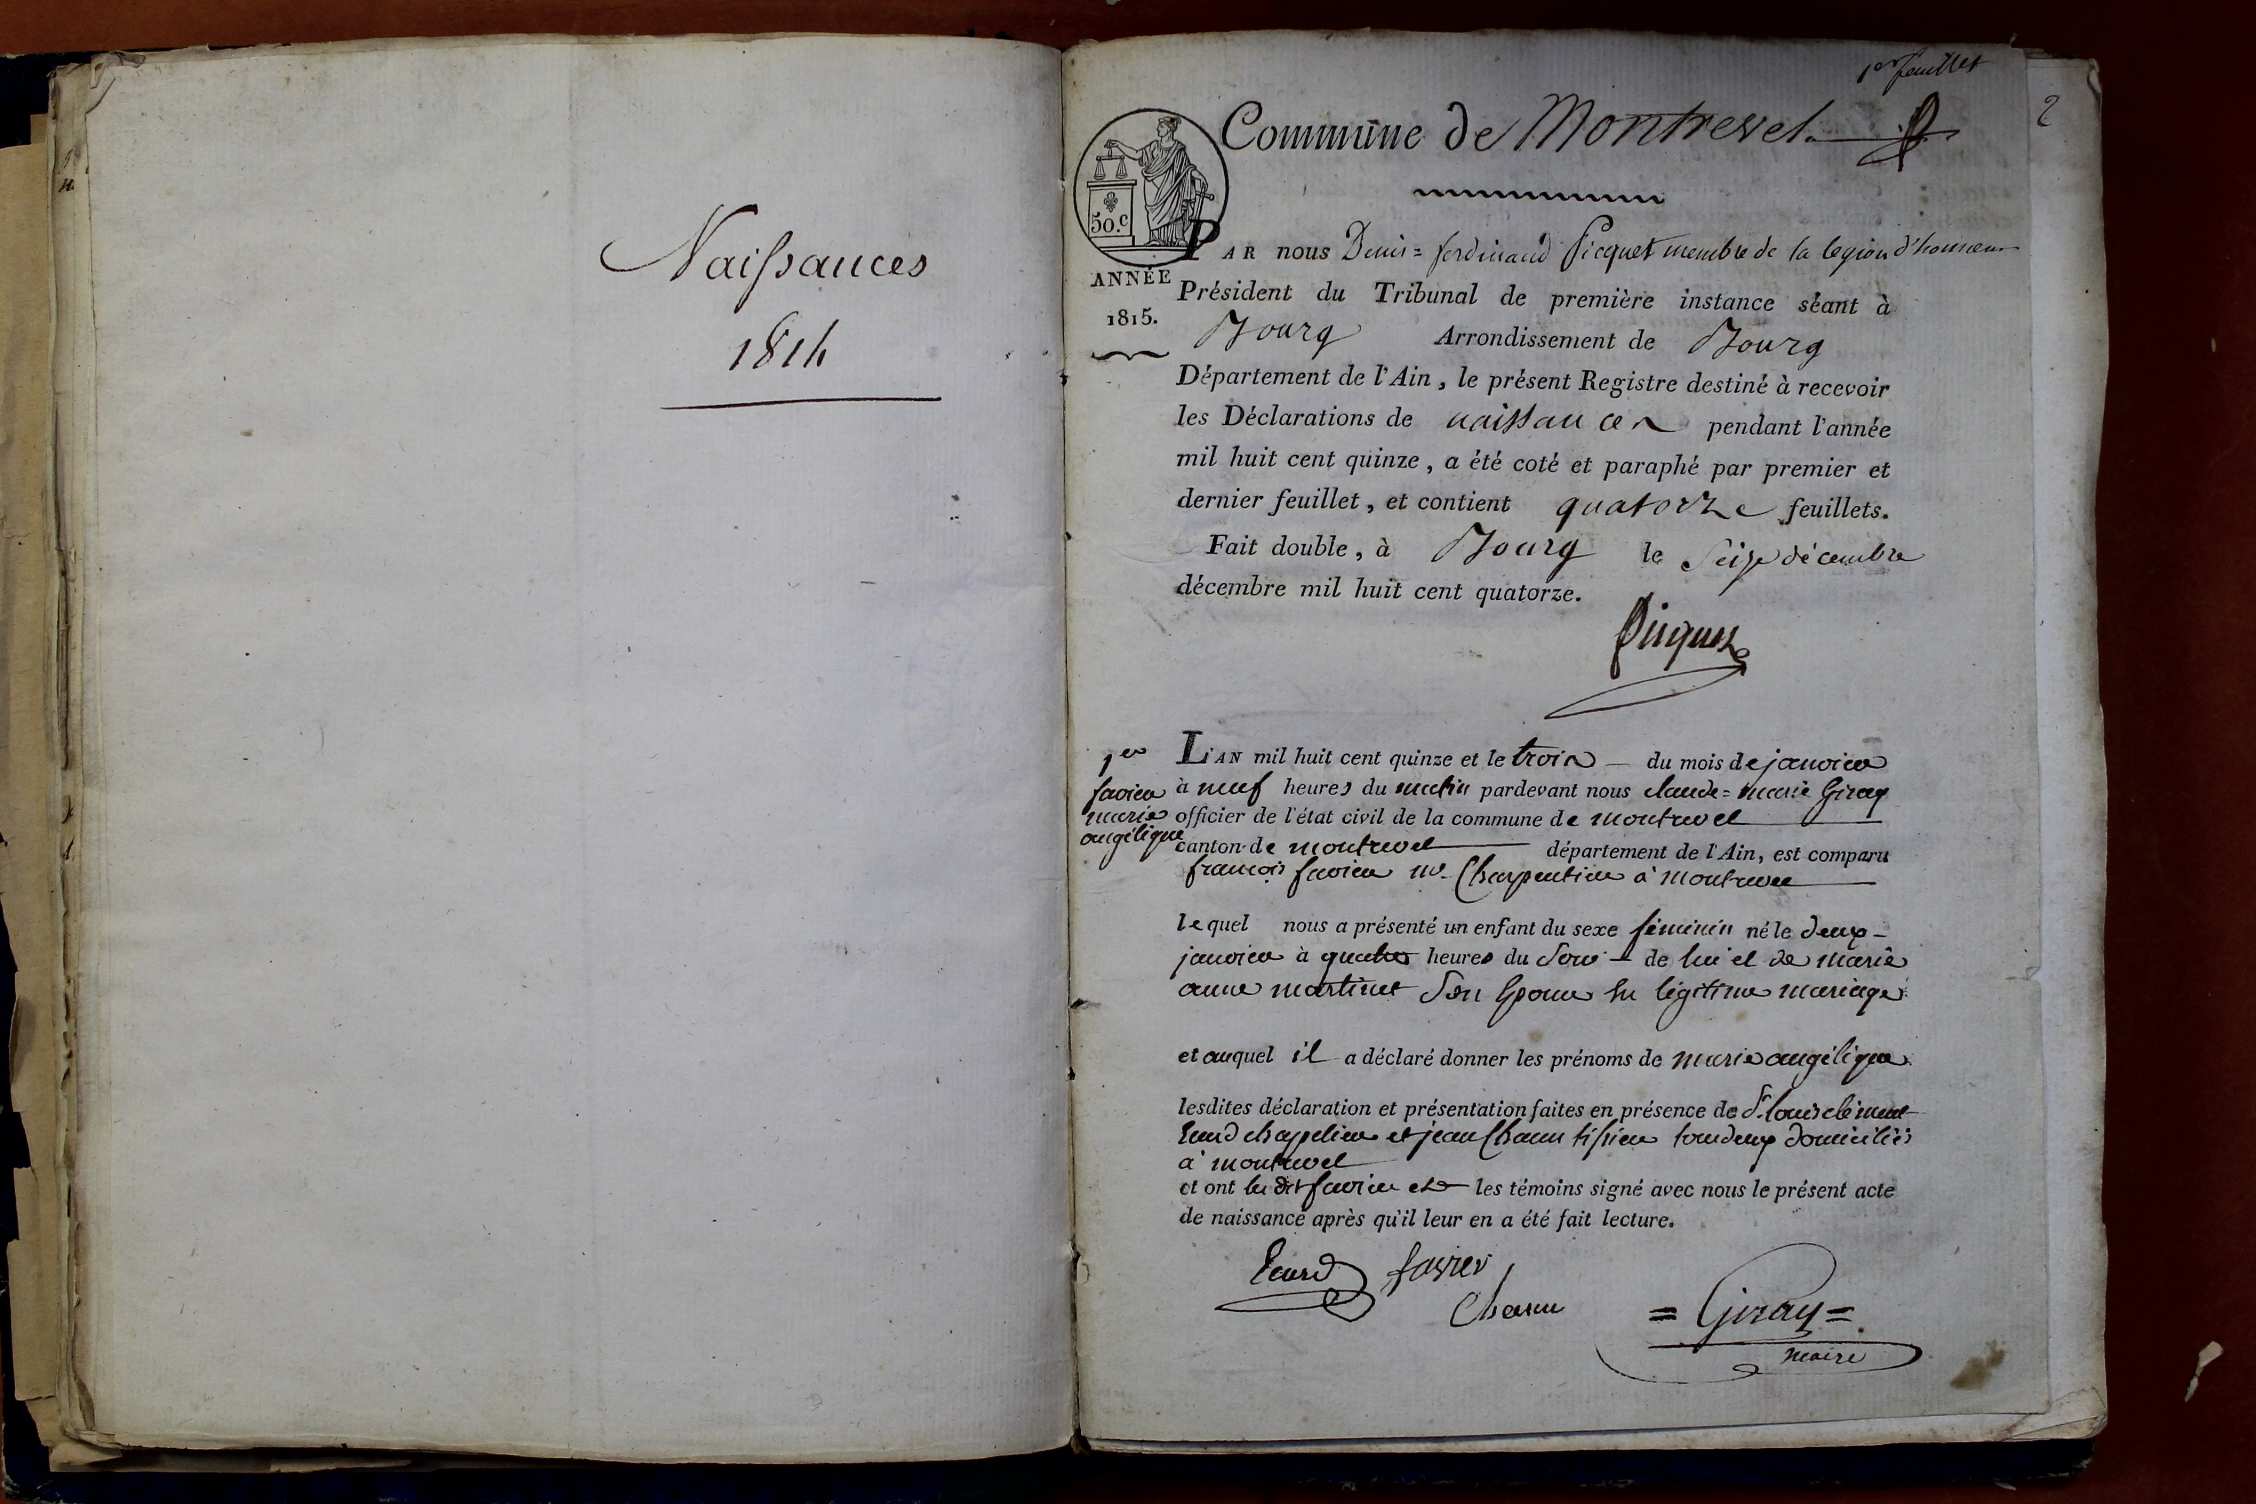 Naissances
1814
1er feuillet
2
Commune de Montrevel
50.c
ANNÉE
1815.
PAR nous Denis=ferdinand Picquet membre de la legion d'honneur
Président du Tribunal de première instance séant à
Bourg Arrondissement de Bourg
Département de l'Ain, le présent Registre destiné à recevoir
les Déclarations de naissances pendant l'année
mil huit cent quinze, a été coté et paraphé par premier et
dernier feuillet, et contient quatorze feuillets.
Fait double, à Bourg le Seize décembre
décembre mil huit cent quatorze.
Picquet
1er
favier
marie
angélique
L'AN mil huit cent quinze et le trois du mois de janvier
à neuf heures du matin pardevant nous claude=marie Giray
officier de l'état civil de la commune de montrevel
canton de montrevel département de l'Ain, est comparu
francois favier me Charpentier à montrevel
lequel nous a présenté un enfant du sexe féminin né le deux
janvier à quatre heures du Soir de lui et de marie
anne martinet Son Epouse En légitime mariage
et auquel il a déclaré donner les prénoms de marie angélique
lesdites déclaration et présentation faites en présence de Sr. louis clément
Ecard chapelier et jean Chanu tissier tous deux domiciliés
à montrevel
et ont le dit favier et les témoins signé avec nous le présent acte
de naissance après qu'il leur en a été fait lecture.
Ecard favier
=Giray=
maire